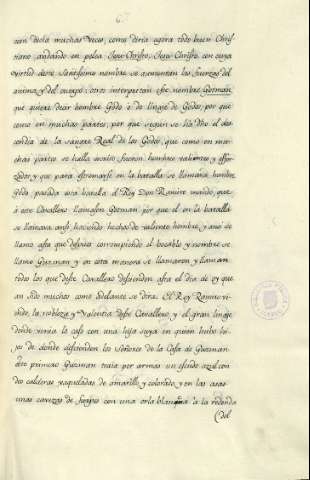 6
con dicho muchas veces, como diria agora todo buen Chris
tiano, andando en pelea Jesu Christo, Jesu Christo, con cuya
virtud deste Santissimo nombre se acrecientan las fuerzas del
anima y del cuerpo: otros interpretan este nombre Gotman,
que quiere decir hombre Godo o de linaje de Godos, por que
como en muchas partes, por que segun se ha dho el des
cendia de la sangre Real de los Godos, que como en mu
chas partes se halla escrito, fueron hombres valientes y esfor
zados, y que para esforzarse en la batalla se llamaria hombre
Godo pasada esta batalla El Rey Don Ramiro mando, que
a este Cavallero llamasen Gotman por que el en la batalla
se llamava ansi haciendo hechos de valiente hombre, y ansi se
llamo asta que despues corrompiendo el bocablo y nombre se
llamo Guzman y en esta manera se llamaron y llaman
todos los que deste Cavallero descienden asta el dia de oy que
an sido muchos como adelante se dira. El Rey Ramiro vi
endo la nobleza y valentia deste Cavallero y el gran linaje
donde venia la caso con una hija suya en quien hubo hi
jos de donde descienden los Señores de la Casa de Guzman
este primero Guzman traia por armas un escudo azul con
dos calderas xaqueladas de amarillo y colorado, y en las asas
unas cavezas de sierpes con una orla blanca a la redonda
(del